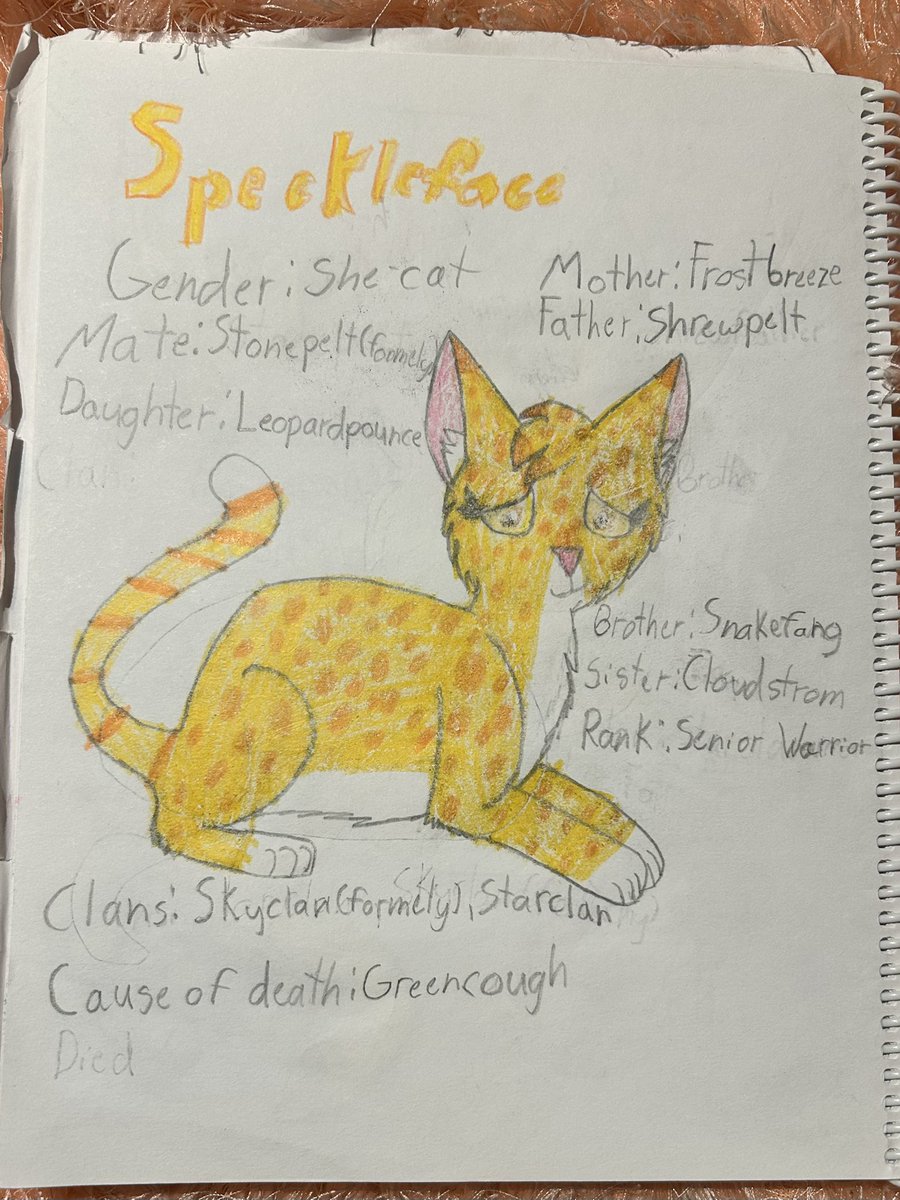 Speckleface
Gender: She-cat
Mother: Frostbreeze
Mate: Stonepelt(formely)
Father: Shrewpelt
Daughter: Leopardpounce
Clan:
Brother
Brother: Snakefang
Sister: Cloudstrom
Rank: Senior Warrior
Clans: Skyclan(formely), Starclan
Cause of death: Greencough
Died